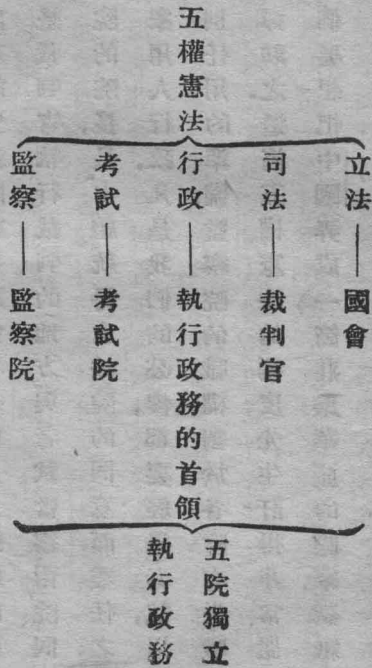 五權憲法
立法——國會
司法——裁判官
行政——執行政務的首領
考試——考試院
監察——監察院
五院獨立
執行政務